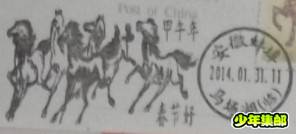 Post of China
甲午年
春节好
安徽蚌埠
2014.01.31.11
马城湖(临)
少年集邮